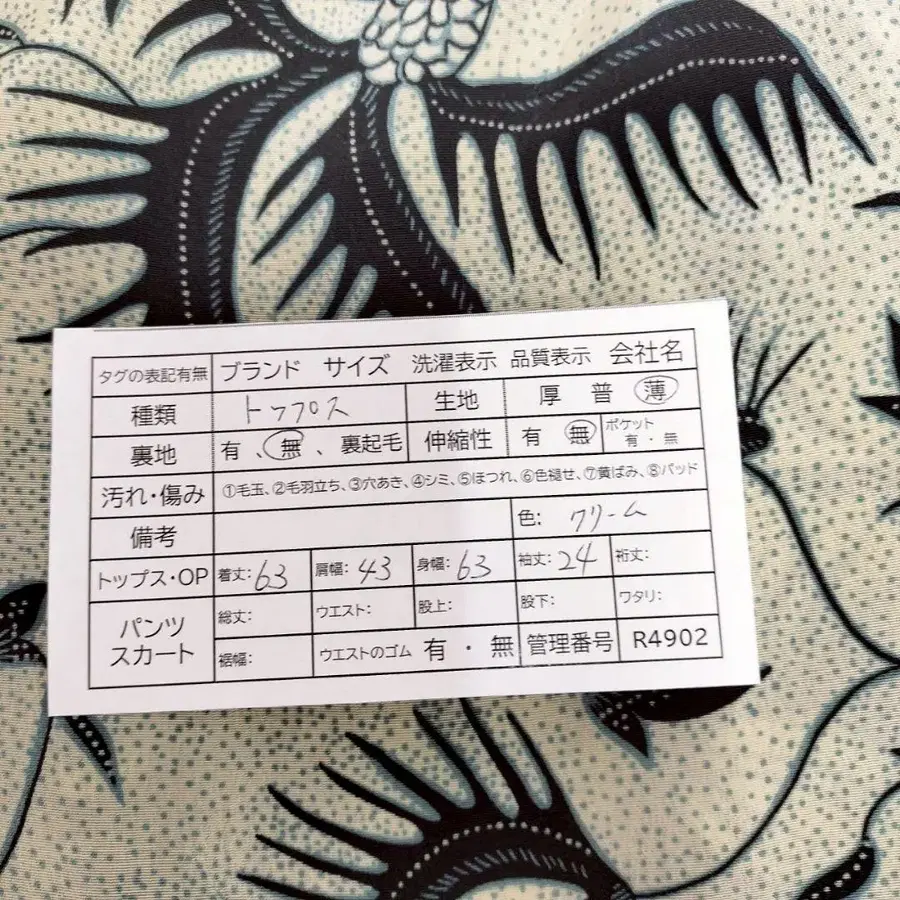 タグの表記有無 ブランド サイズ 洗濯表示 品質表示 会社名
種類 トップス 生地 厚 普 薄
裏地 有、無、裏起毛 伸縮性 有 無 ポケット 有・無
汚れ・傷み ①毛玉、②毛羽立ち、③穴あき、④シミ、⑤ほつれ、⑥色褪せ、⑦黄ばみ、⑧パッド
備考 色: クリーム
トップス・OP 着丈:63 肩幅:43 身幅:63 袖丈:24 裄丈:
パンツ スカート 総丈: ウエスト: 股上: 股下: ワタリ:
裾幅: ウエストのゴム 有・無 管理番号 R4902